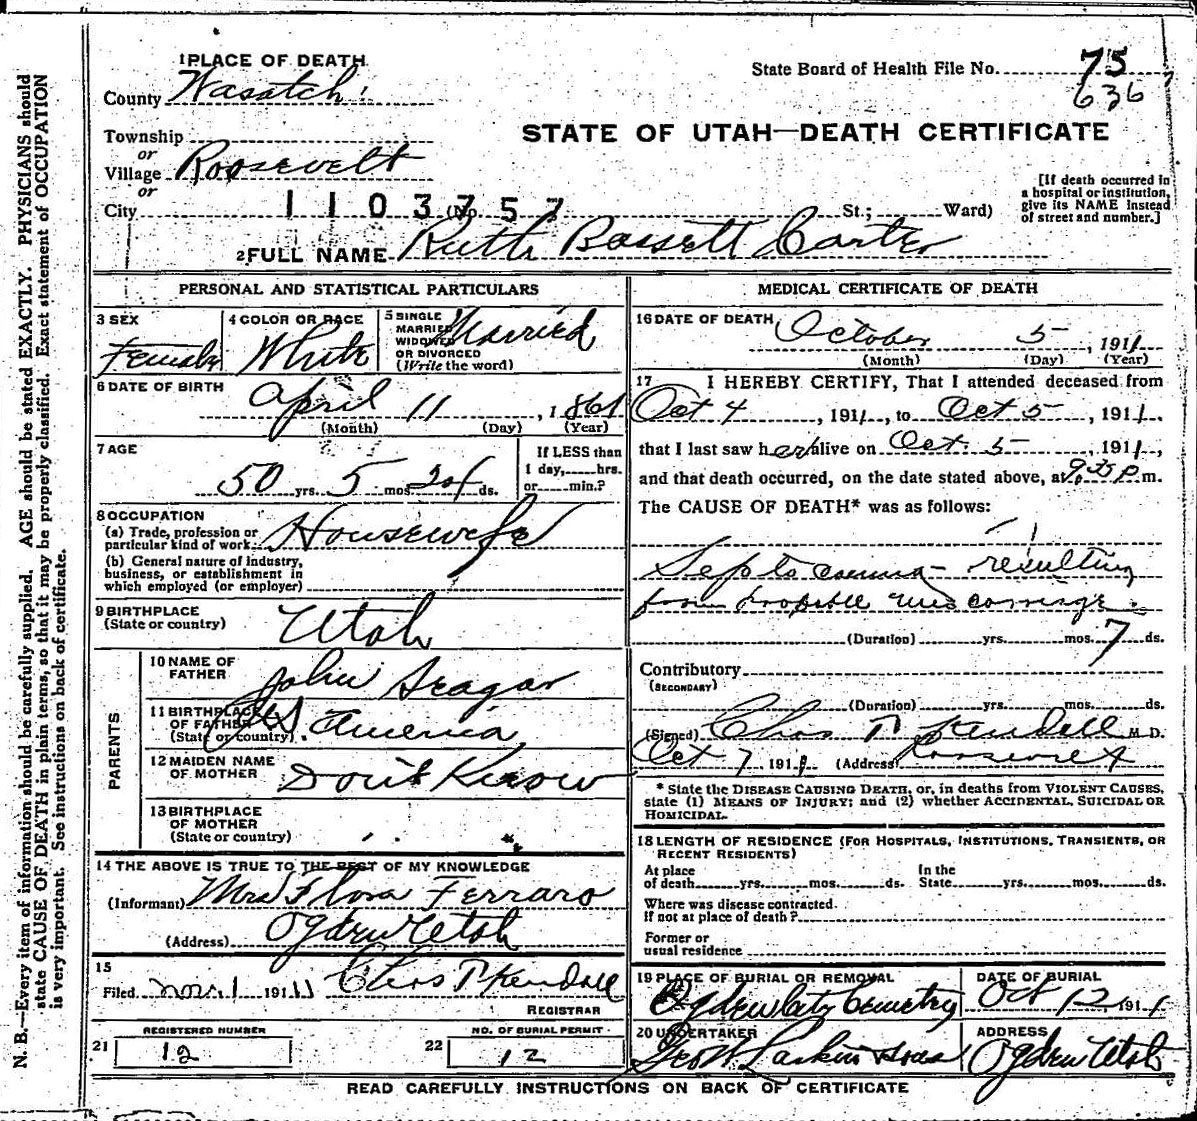 N. B.—Every item of information should be carefully supplied. AGE should be stated EXACTLY. PHYSICIANS should
state CAUSE OF DEATH in plain terms, so that it may be properly classified. Exact statement of OCCUPATION
is very important. See instructions on back of certificate.
1 PLACE OF DEATH
County Wasatch
State Board of Health File No. 75
636
Township
or
Village Roosevelt
or
STATE OF UTAH—DEATH CERTIFICATE
City 1103757 (No. St.; Ward)
[If death occurred in
a hospital or institution,
give its NAME instead
of street and number.]
2 FULL NAME Ruth Bassett Carter
PERSONAL AND STATISTICAL PARTICULARS
3 SEX
Female
4 COLOR OR RACE
White
5 SINGLE
MARRIED
WIDOWED
OR DIVORCED
(Write the word)
Married
6 DATE OF BIRTH
April 11, 1861
(Month) (Day) (Year)
7 AGE
50 yrs. 5 mos. 24 ds.
If LESS than
1 day,.....hrs.
or.....min.?
8 OCCUPATION
(a) Trade, profession or
particular kind of work Housewife
(b) General nature of industry,
business, or establishment in
which employed (or employer)
9 BIRTHPLACE
(State or country)
Utah
PARENTS
10 NAME OF
FATHER
John Seagar
11 BIRTHPLACE
OF FATHER
(State or country)
U.S. America
12 MAIDEN NAME
OF MOTHER
Don't Know
13 BIRTHPLACE
OF MOTHER
(State or country)
14 THE ABOVE IS TRUE TO THE BEST OF MY KNOWLEDGE
(Informant) Mrs Flora Ferraro
(Address) Ogden Utah
15
Filed Nov. 1 1911 Chas T Kendell
REGISTRAR
REGISTERED NUMBER
21 12
NO. OF BURIAL PERMIT
22 12
MEDICAL CERTIFICATE OF DEATH
16 DATE OF DEATH
October 5, 1911
(Month) (Day) (Year)
17 I HEREBY CERTIFY, That I attended deceased from
Oct 4, 1911, to Oct 5, 1911.
that I last saw her alive on Oct. 5, 1911,
and that death occurred, on the date stated above, at 9.35 p m.
The CAUSE OF DEATH* was as follows:
Septocaemia - resulting
from probable miscarriage
(Duration) yrs. mos. 7 ds.
Contributory
(SECONDARY)
(Duration) yrs. mos. ds.
(Signed) Chas T Kendell M. D.
Oct 7 1911 (Address) Roosevelt
* State the DISEASE CAUSING DEATH, or, in deaths from VIOLENT CAUSES,
state (1) MEANS OF INJURY; and (2) whether ACCIDENTAL, SUICIDAL OR
HOMICIDAL.
18 LENGTH OF RESIDENCE (FOR HOSPITALS, INSTITUTIONS, TRANSIENTS, OR
RECENT RESIDENTS)
At place
of death yrs. mos. ds.
In the
State yrs. mos. ds.
Where was disease contracted.
If not at place of death?
Former or
usual residence
19 PLACE OF BURIAL OR REMOVAL
Ogden City Cemetry
DATE OF BURIAL
Oct 12, 1911
20 UNDERTAKER
Geo W. Larkin & Sons
ADDRESS
Ogden Utah
READ CAREFULLY INSTRUCTIONS ON BACK OF CERTIFICATE